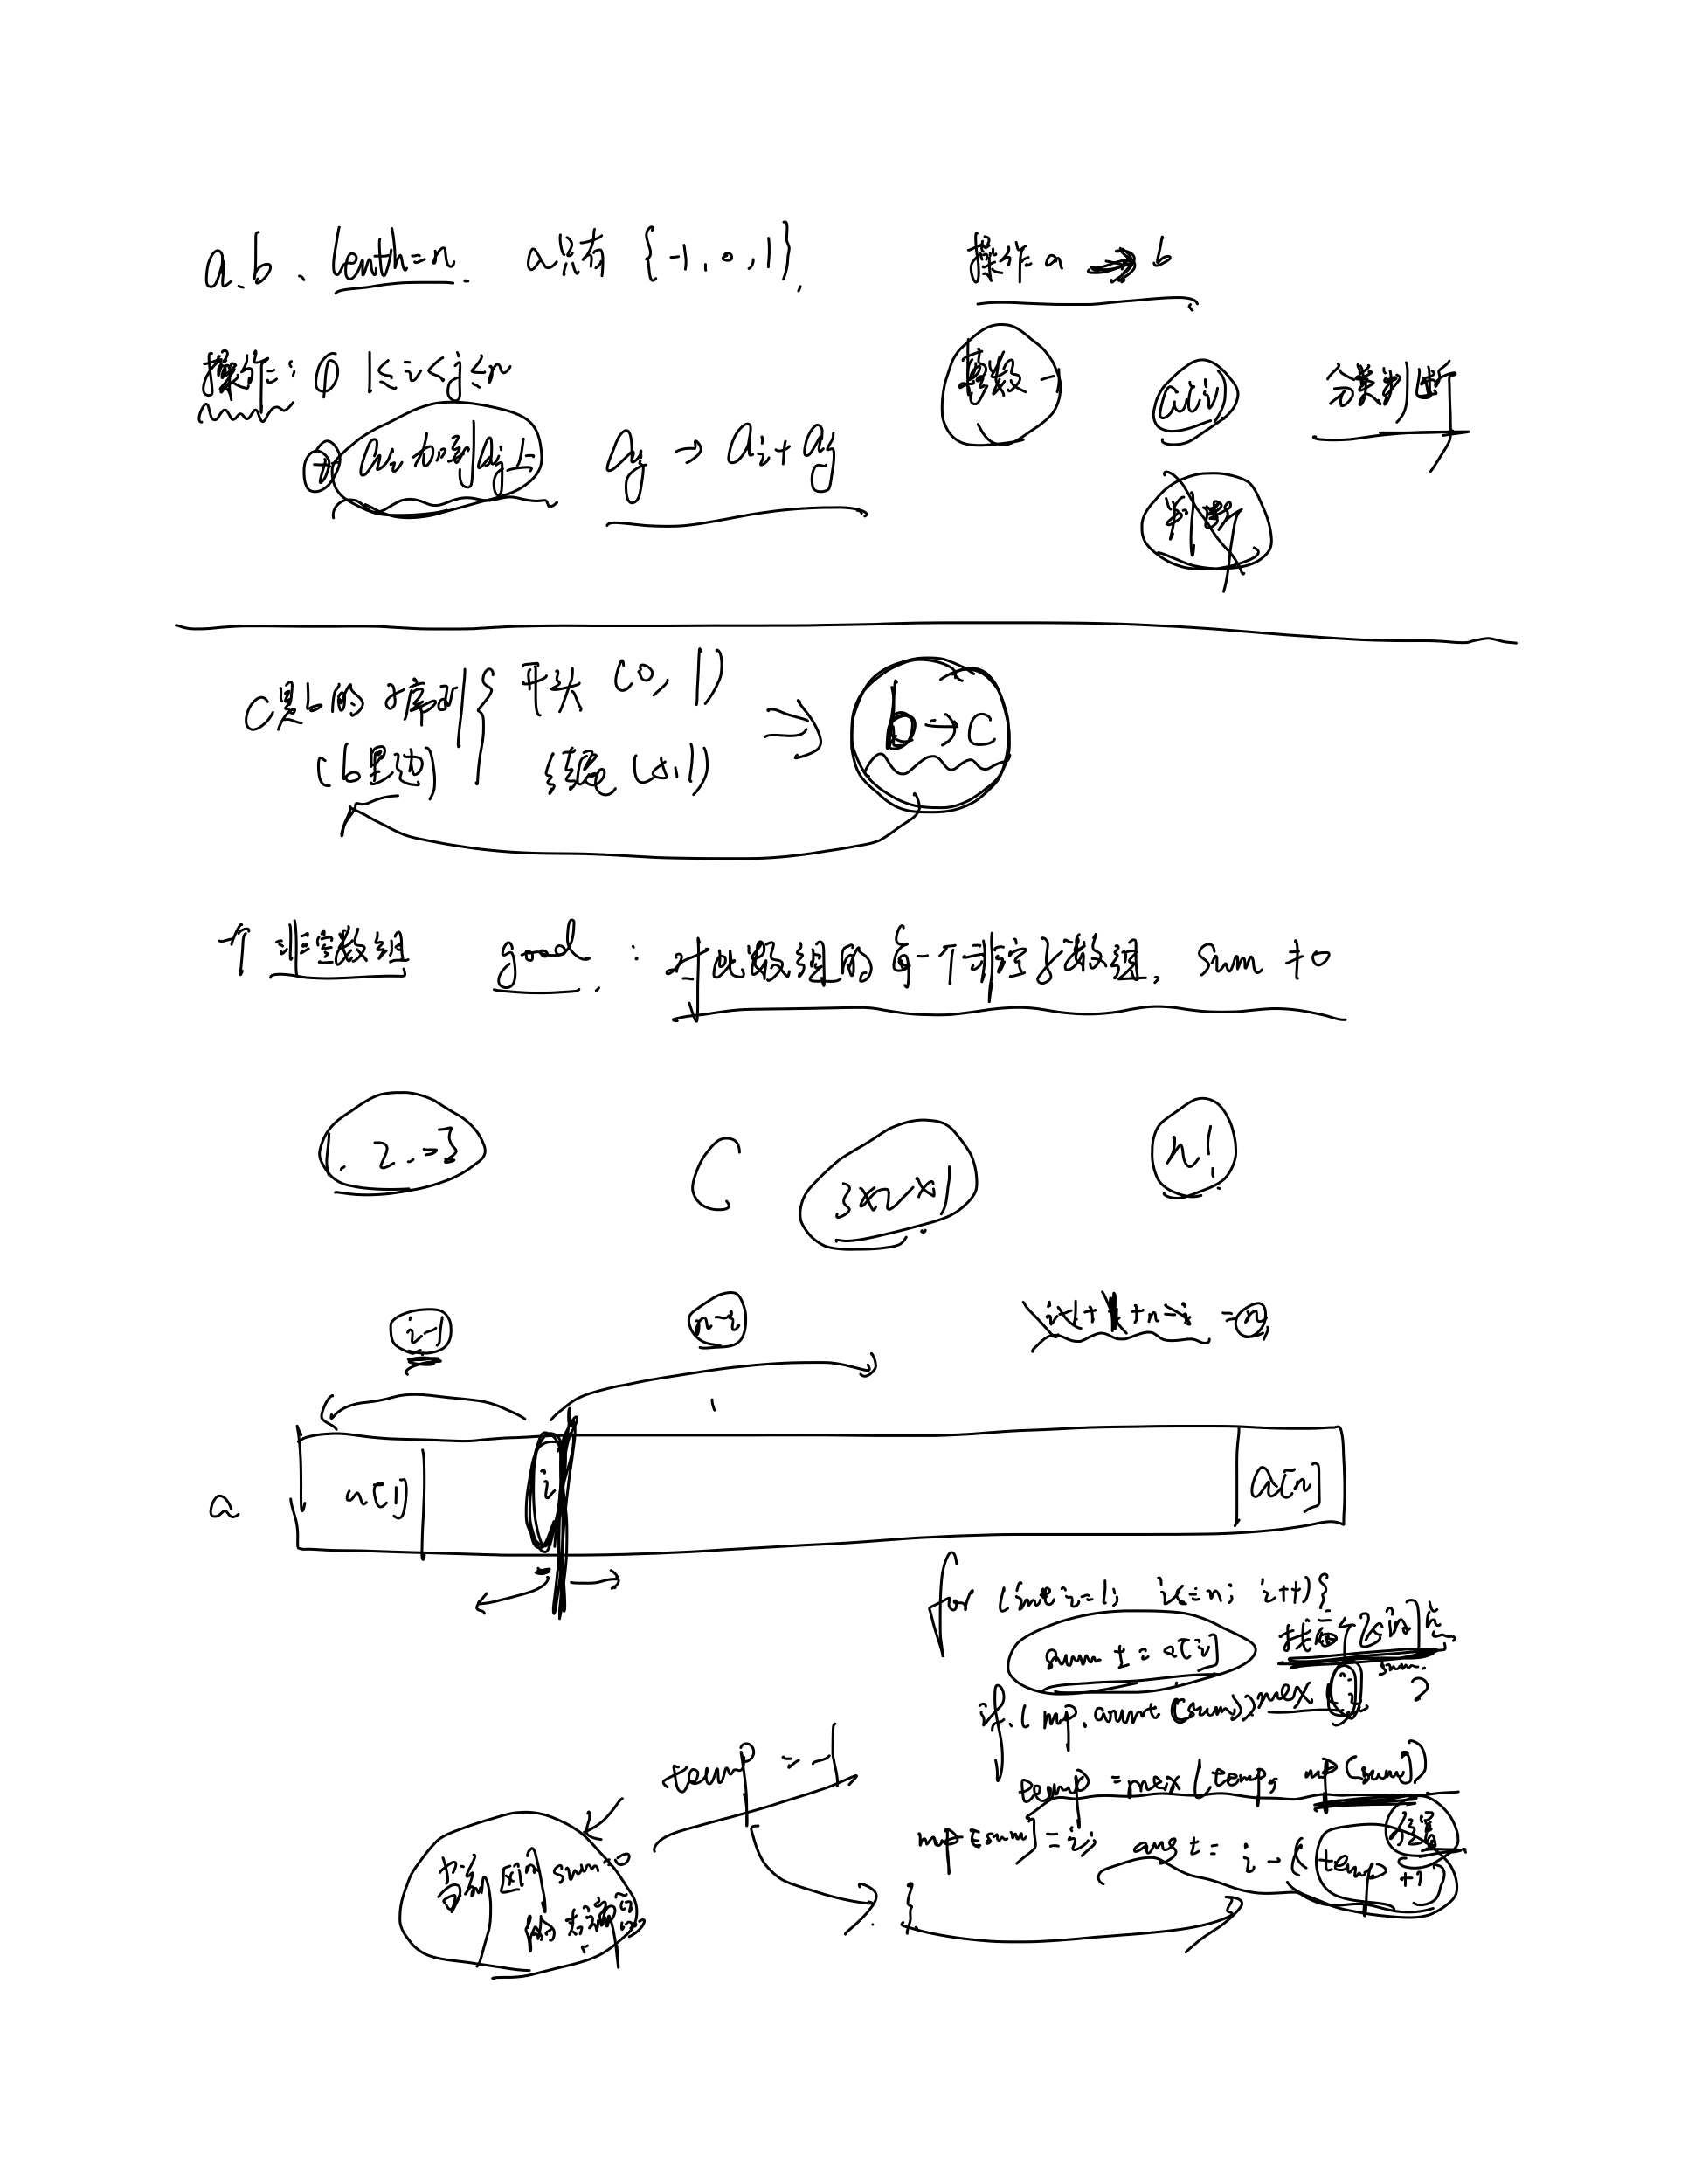 a.b、lenth=n. a只有 {-1,0,1}. 操作 a → b
操作: ① 1≤i<j≤n
② ai 加到 aj 上 aj → ai+aj
a(i) 分类判断
判断
c是b的子序列 { 开头 (0,1)
(b里边) 结尾 ⇒ b→c
一个 非空数组 good : 对此数组的每一个非空子数组, sum ≠0
1. 2. 3
C 3×2×1 n!
i-1 n-i +n-i =n
a a[1] i a[n]
for (int i=1; i<=n; i++){
sum += a[i]
if (mp.count(sum)) max i sum
temp = -1
temp = max(temp, mp[sum])
mp[sum]=i; ans += i-(temp+1) 位置
当前区间 sum=0
的左端
}